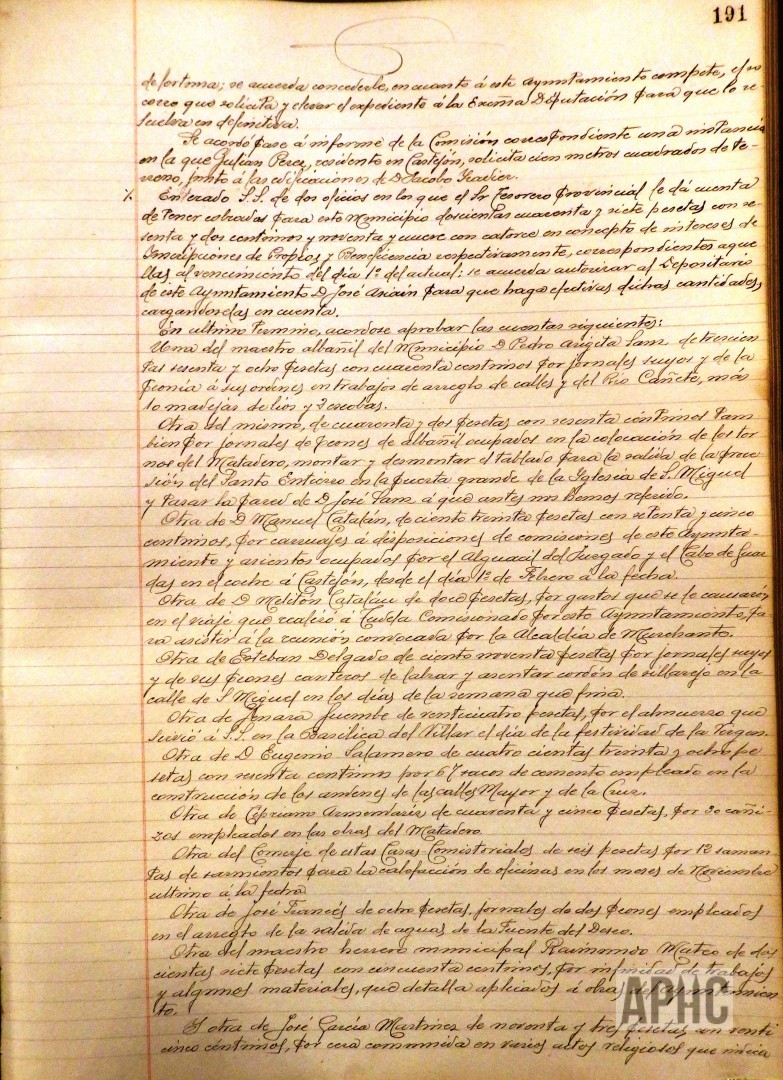 191
de fortuna; se acuerda concederle, en cuanto á este Ayuntamiento compete, el so
corro que solicita y elevar el expediente á la Excma Diputación para que lo re-
suelva en definitiva.
Se acordó pase á informe de la Comisión correspondiente una instancia
en la que Julián Perez, residente en Castejón, solicita cien metros cuadrados de te-
rreno, junto á las edificaciones de D. Jacobo
Enterado S.S. de dos oficios en los que el Sr Tesorero Provincial le dá cuenta
de tener cobradas para este Municipio doscientas cuarenta y siete pesetas con se-
senta y dos centimos y noventa y nueve con catorce en concepto de intereses de
Inscripciones de Propios y Beneficencia respectivamente, correspondientes aque-
llas al vencimiento del día 1º del actual; se acuerda autorizar al Depositario
de este Ayuntamiento D José Asiain para que haga efectivas dichas cantidades,
cargandoselas en cuenta.
En ultimo termino, acordose aprobar las cuentas siguientes:
Una del maestro albañil del Municipio D Pedro Argeta Sanz de trescien
tas sesenta y ocho pesetas con cuarenta centimos por jornales suyos y de la
peonía á sus ordenes en trabajos de arreglo de calles y del Rio Cañete, más
10 madejas de lios y 2 escobas.
Otra del mismo, de cuarenta y dos pesetas con sesenta céntimos tam
bien por jornales de peones de albañil ocupados en la colocación de los tor
nos del Matadero, montar y desmontar el tablado para la salida de la proce-
sión del Santo Entierro en la puerta grande de la Iglesia de S. Miguel
y tasar la pared de D José Sanz á que antes nos hemos referido.
Otra de D Manuel Catalán, de ciento treinta pesetas con setenta y cinco
centimos, por carruajes á disposiciones de comisiones de este Ayunta-
miento y asientos ocupados por el Alguacil del Juzgado y el Cabo de Guar
das en el coche á Castejón, desde el día 1º de Febrero á la fecha.
Otra de D Melitón Catalán de doce pesetas, por gastos que se le causaron
en el viaje que realizó á Tudela Comisionado por este Ayuntamiento, pa
ra asistir á la reunión convocada por la Alcaldía de Murchante.
Otra de Esteban Delgado de ciento noventa pesetas por jornales suyos
y de sus peones canteros de labrar y asentar cordón de sillarejo en la
calle de S Miguel en los días de la semana que fina.
Otra de Jenara Fuembe de venticuatro pesetas, por el almuerzo que
sirvió á S.S. en la Basílica del Villar el día de la festividad de la Virgen.
Otra de D Eugenio Salamero de cuatro cientas treinta y ocho pe
setas con sesenta centimos por 67 sacos de cemento empleado en la
construcción de los andenes de las calles Mayor y de la Cruz.
Otra de Cipriano Armendariz de cuarenta y cinco pesetas, por 30 cañi-
zos empleados en las obras del Matadero
Otra del Conserje de estas Casas-Comistoriales de seis pesetas por 12 saman
tas de sarmientos para la calefacción de oficinas en los meses de Noviembre
ultimo á la fecha
Otra de José Francés de ocho pesetas, jornales de dos peones empleados
en el arreglo de la salida de aguas de la Fuente del Deseo.
Otra del maestro herrero municipal Raimundo Mateo de dos
cientas siete pesetas con cincuenta centimos, por infinidad de trabajos
y algunos materiales, que detalla aplicados á obras
to.
Y otra de José García Martinez de noventa y tres pesetas con venti
cinco céntimos, por cera consumida en varios actos religiosos que indica
APHC